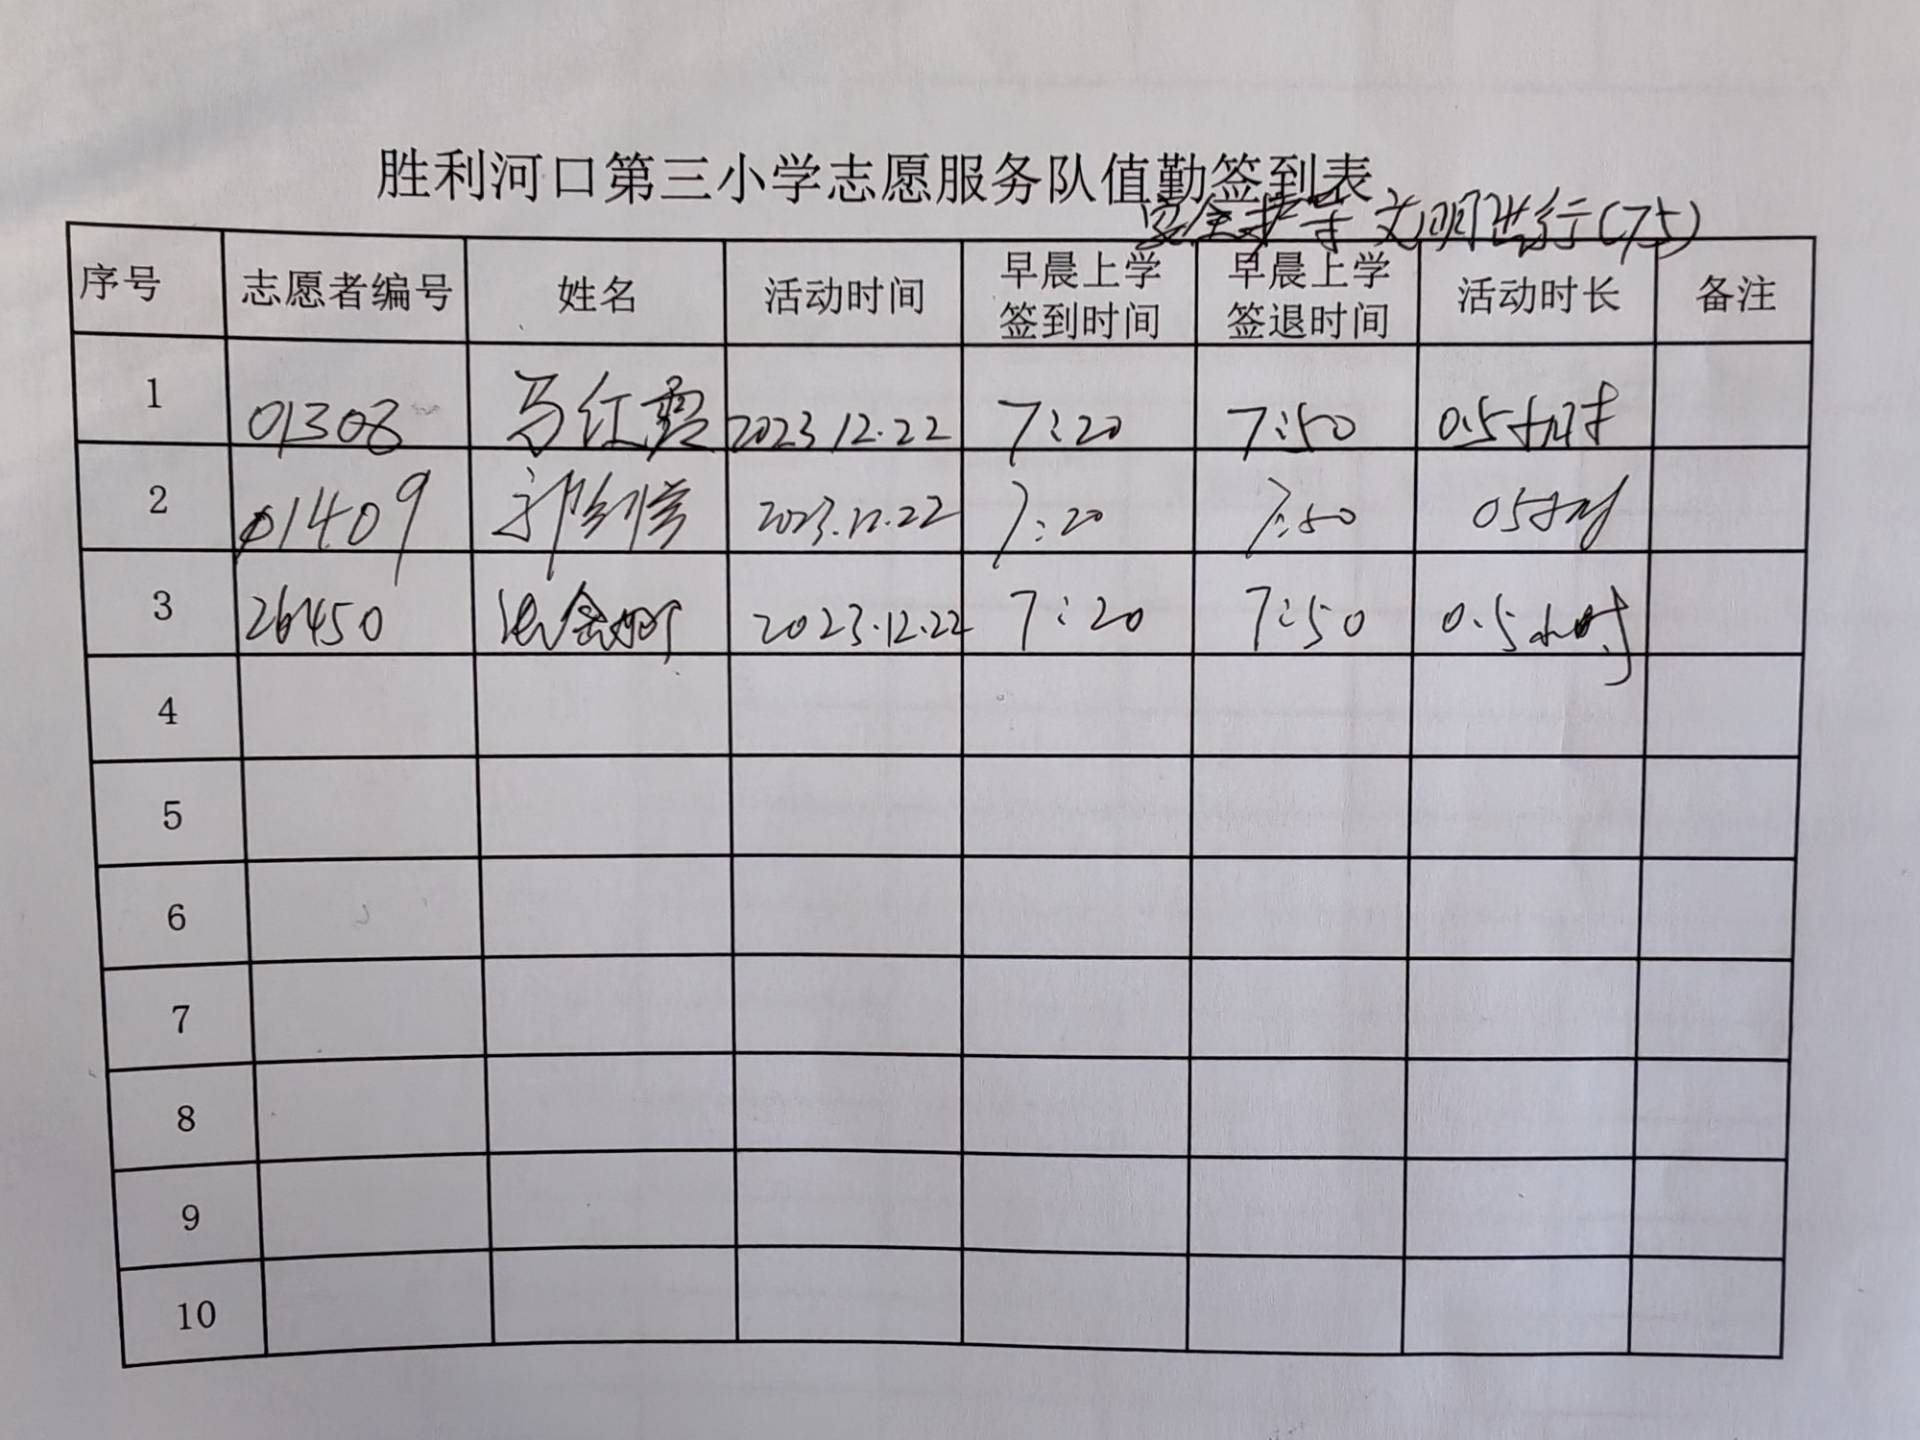 胜利河口第三小学志愿服务队值勤签到表
安全护学 文明出行(75)
序号 志愿者编号 姓名 活动时间 早晨上学签到时间 早晨上学签退时间 活动时长 备注
1 01308 马红霞 2023.12.22 7:20 7:50 0.5小时
2 01409 2023.12.22 7:20 7:50 0.5小时
3 26450 2023.12.22 7:20 7:50 0.5小时
4
5
6
7
8
9
10